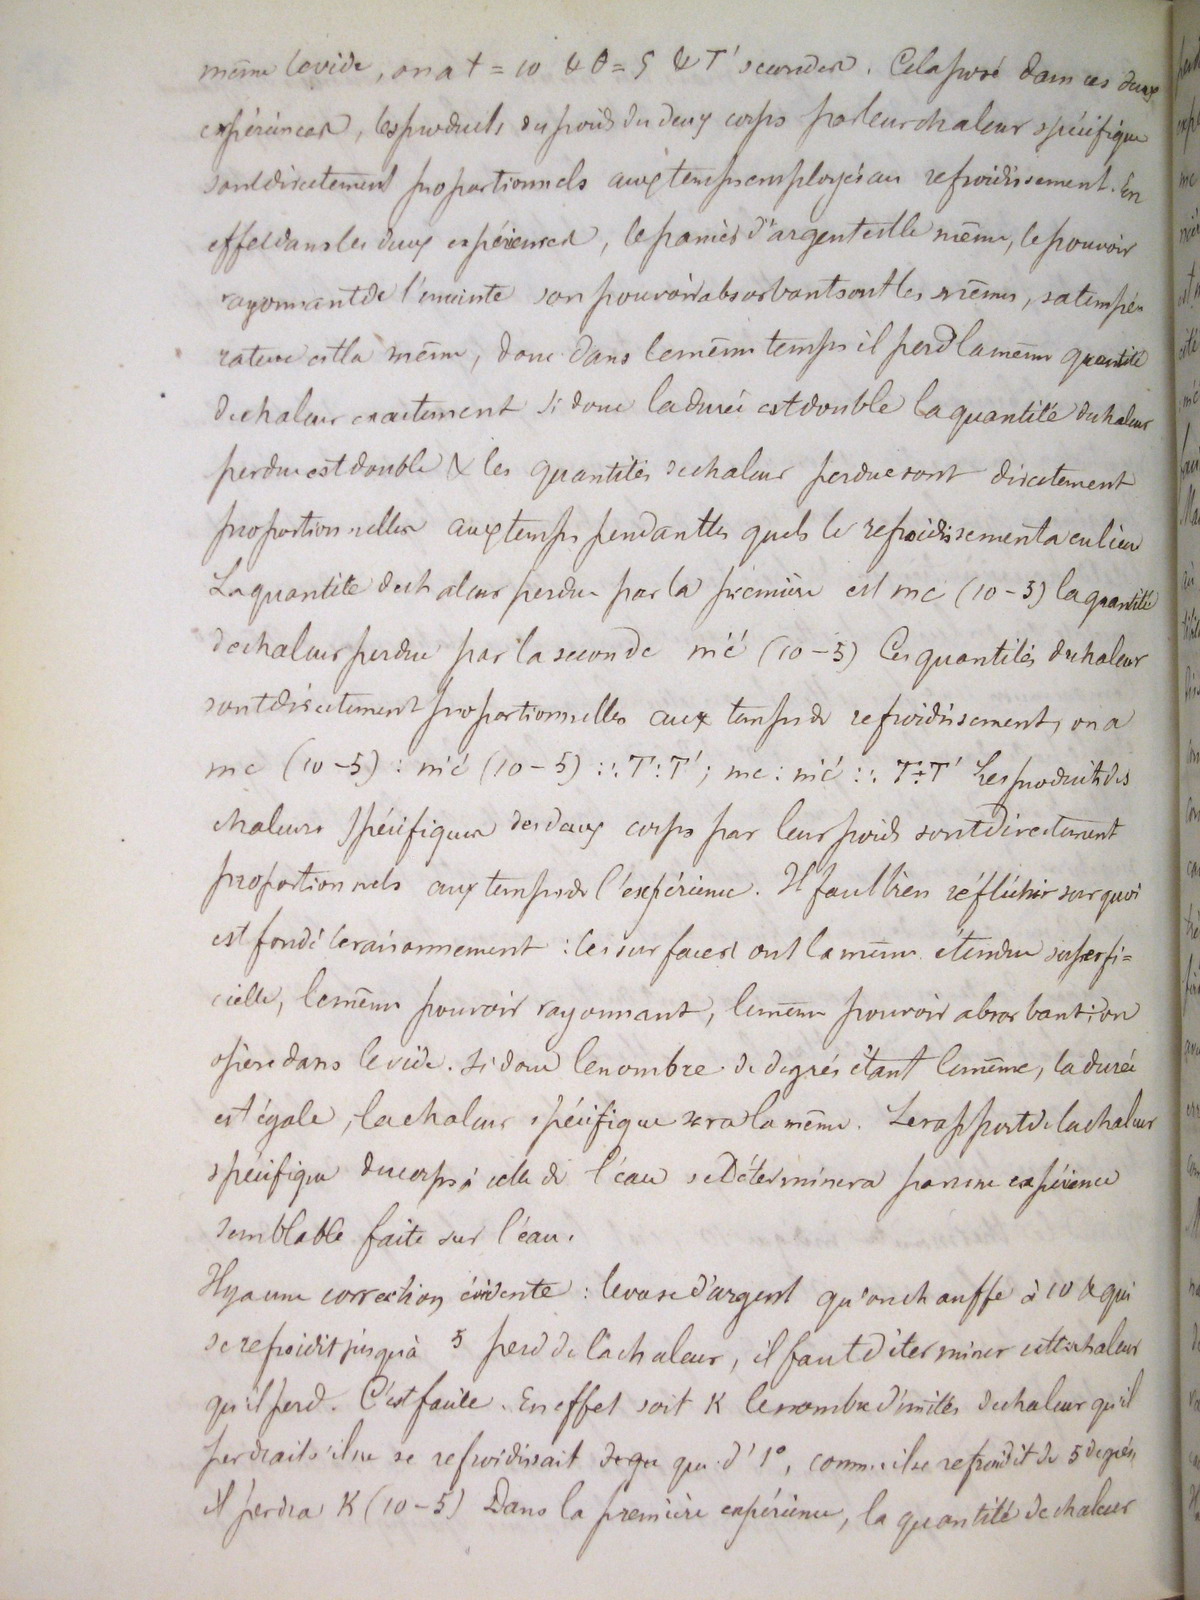 même le vide, on a t = 10 & θ = 5 & T' secondes. Cela posé dans ces deux
expériences, les produits du poids des deux corps par leur chaleur spécifique
sont directement proportionnels aux temps employés au refroidissement. En
effet dans les deux expériences, le panier d'argent est le même, le pouvoir
rayonnant de l'enceinte son pouvoir absorbant sont les mêmes, sa tempé
rature est la même, donc dans le même temps il perd la même quantité
de chaleur exactement Si donc la durée est double la quantité de chaleur
perdue est double & les quantités de chaleur perdue sont directement
proportionnelles aux temps pendant les quels le refroidissement a eu lieu
La quantité de chaleur perdue par la première est mc (10 - 5) la quantité
de chaleur perdue par la seconde m'c' (10 - 5) Ces quantités de chaleur
sont directement proportionnelles aux temps de refroidissement, on a
mc (10 - 5) : m'c' (10 - 5) :: T : T' ; mc : m'c' :: T : T' Les produits des
chaleurs spécifiques des deux corps par leur poids sont directement
proportionnels aux temps de l'expérience. Il faut bien réfléchir sur quoi
est fondé le raisonnement : les surfaces ont la même étendue superfi=
cielle, le même pouvoir rayonnant, le même pouvoir absorbant ; on
opère dans le vide. Si donc le nombre de degrés étant le même, la durée
est égale, la chaleur spécifique sera la même. Le rapport de la chaleur
spécifique du corps à celle de l'eau se déterminera par une expérience
semblable faite sur l'eau.
Il y a une correction évidente : le vase d'argent qu'on chauffe à 10 & qui
se refroidit jusqu'à 5 perd de la chaleur, il faut déterminer cette chaleur
qu'il perd. C'est facile. En effet soit K le nombre d'unités de chaleur qu'il
perdrait s'il ne se refroidissait que d'1°, comme il se refroidit de 5 degrés,
il perdra K (10 - 5) Dans la première expérience, la quantité de chaleur